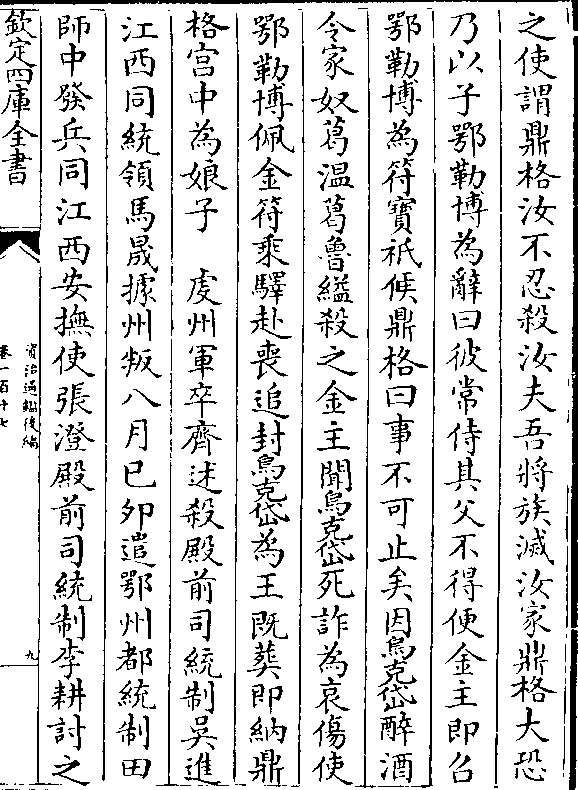 之使謂鼎格汝不忍殺汝夫吾將族滅汝家鼎格大恐
乃以子鄂勒博為辭曰彼常侍其父不得便金主即召
鄂勒博為符寶祗候鼎格曰事不可止矣因烏克岱醉酒
令家奴葛温葛魯縊殺之金主聞烏克岱死詐為哀傷使
鄂勒博佩金符乘驛赴喪追封烏克岱為王既葬即納鼎
格宫中為娘子　虔州軍卒齊述殺殿前司統制吳進
江西同統領馬晟據州叛八月已夘遣鄂州都統制田
師中發兵同江西安撫使張澄殿前司統制李耕討之
欽定四庫全書
資治通鑑後編
卷一百十七
九